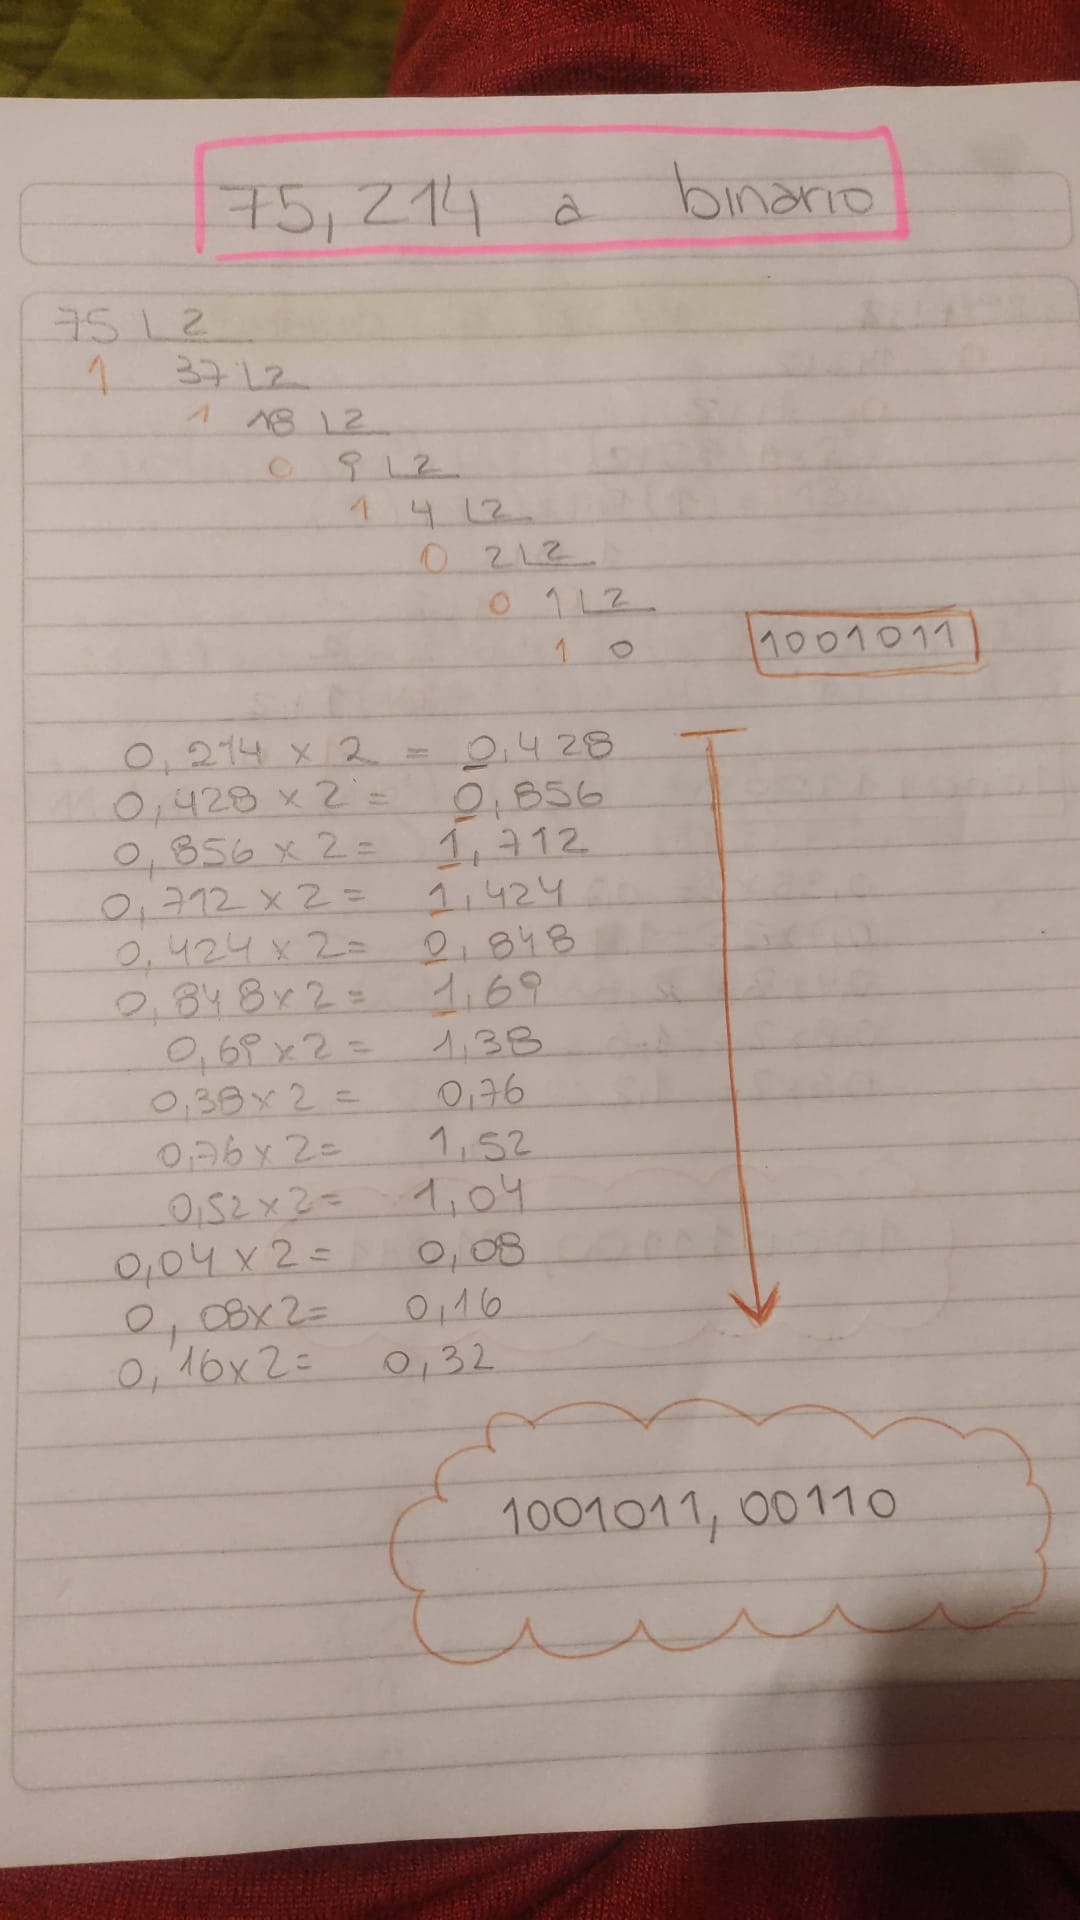 75,214 a binario
75 L2
1 37 L2
1 18 L2
0 9 L2
1 4 L2
0 2 L2
0 1 L2
1 0
1001011
0,214 x 2 = 0,428
0,428 x 2 = 0,856
0,856 x 2 = 1,712
0,712 x 2 = 1,424
0,424 x 2 = 0,848
0,848 x 2 = 1,69
0,69 x 2 = 1,38
0,38 x 2 = 0,76
0,76 x 2 = 1,52
0,52 x 2 = 1,04
0,04 x 2 = 0,08
0,08 x 2 = 0,16
0,16 x 2 = 0,32
1001011,00110